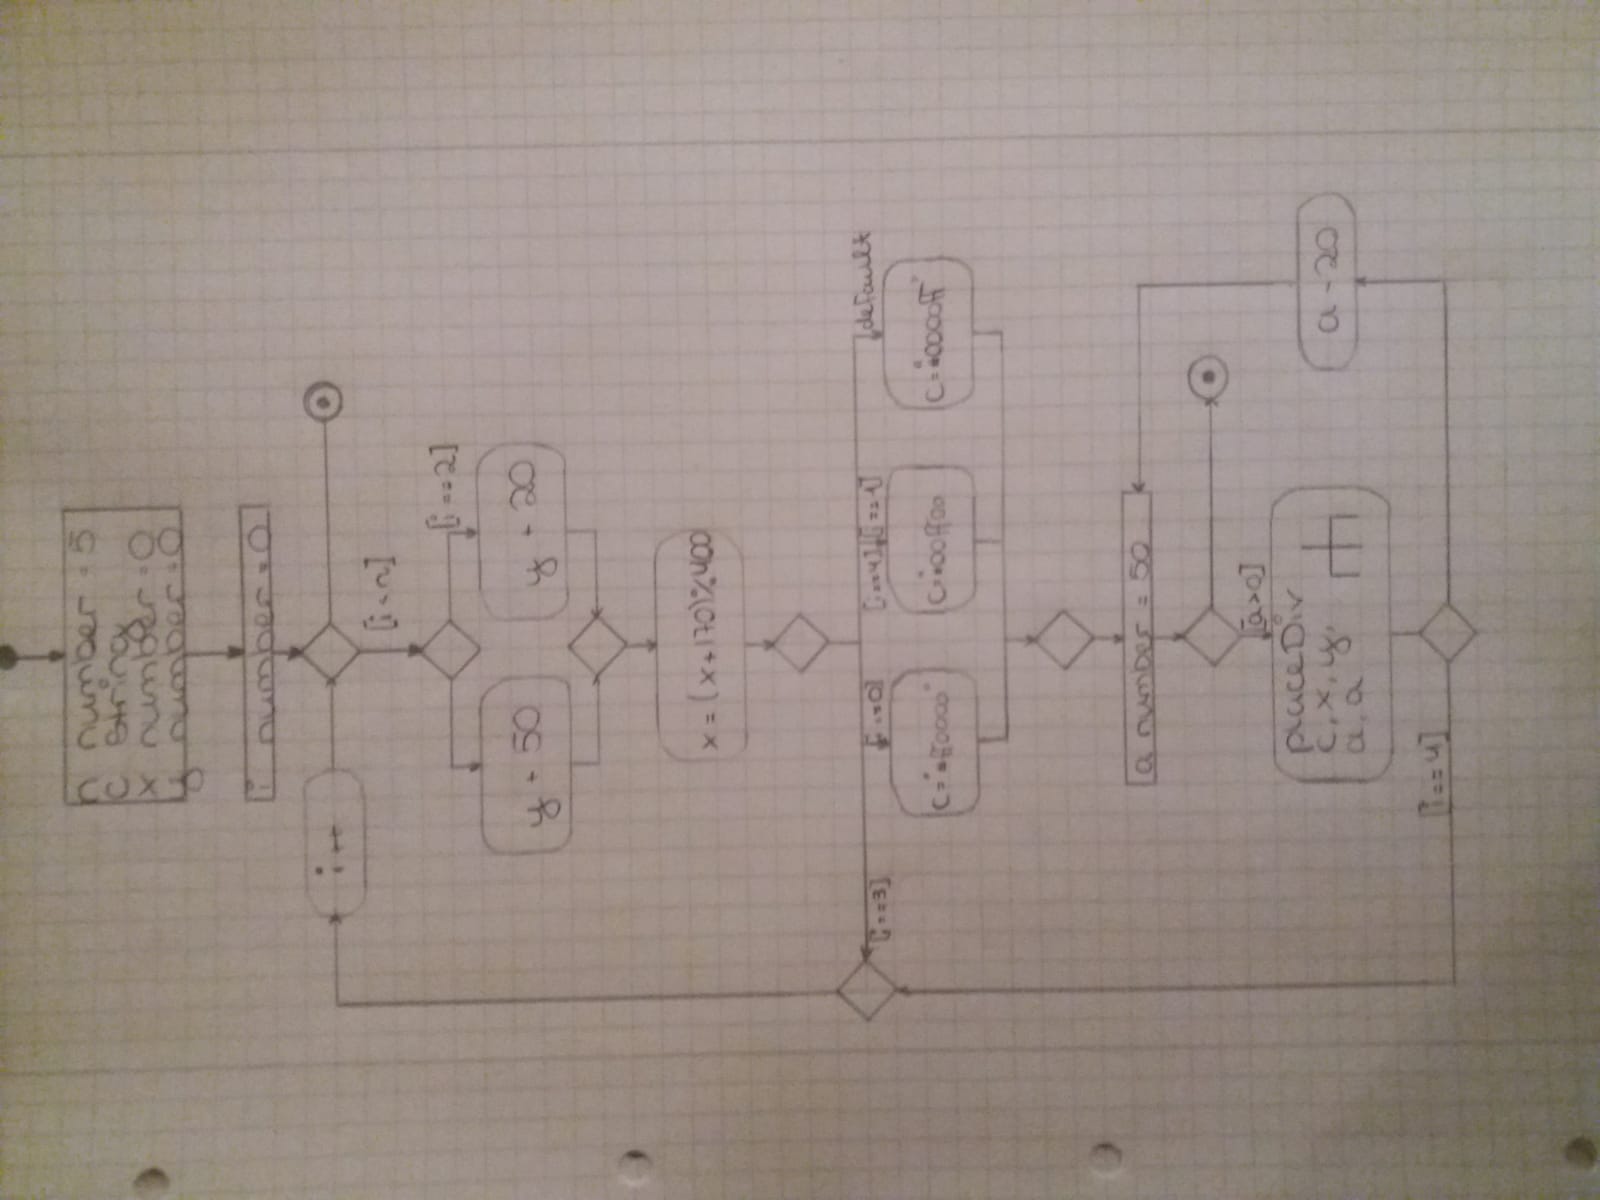 n number = 5
c string
x number = 0
y number = 0
i number = 0
i +
[i < n]
[i == 2]
y + 50
y + 20
x = (x+170)%400
[i==3]
[i==0]
[i==4]
[i==1]
default
c="#ff0000"
c="#00ff00
c="#0000ff"
a number = 50
[a>0]
placeDiv
c, x, y,
a, a
a - 20
[i==4]